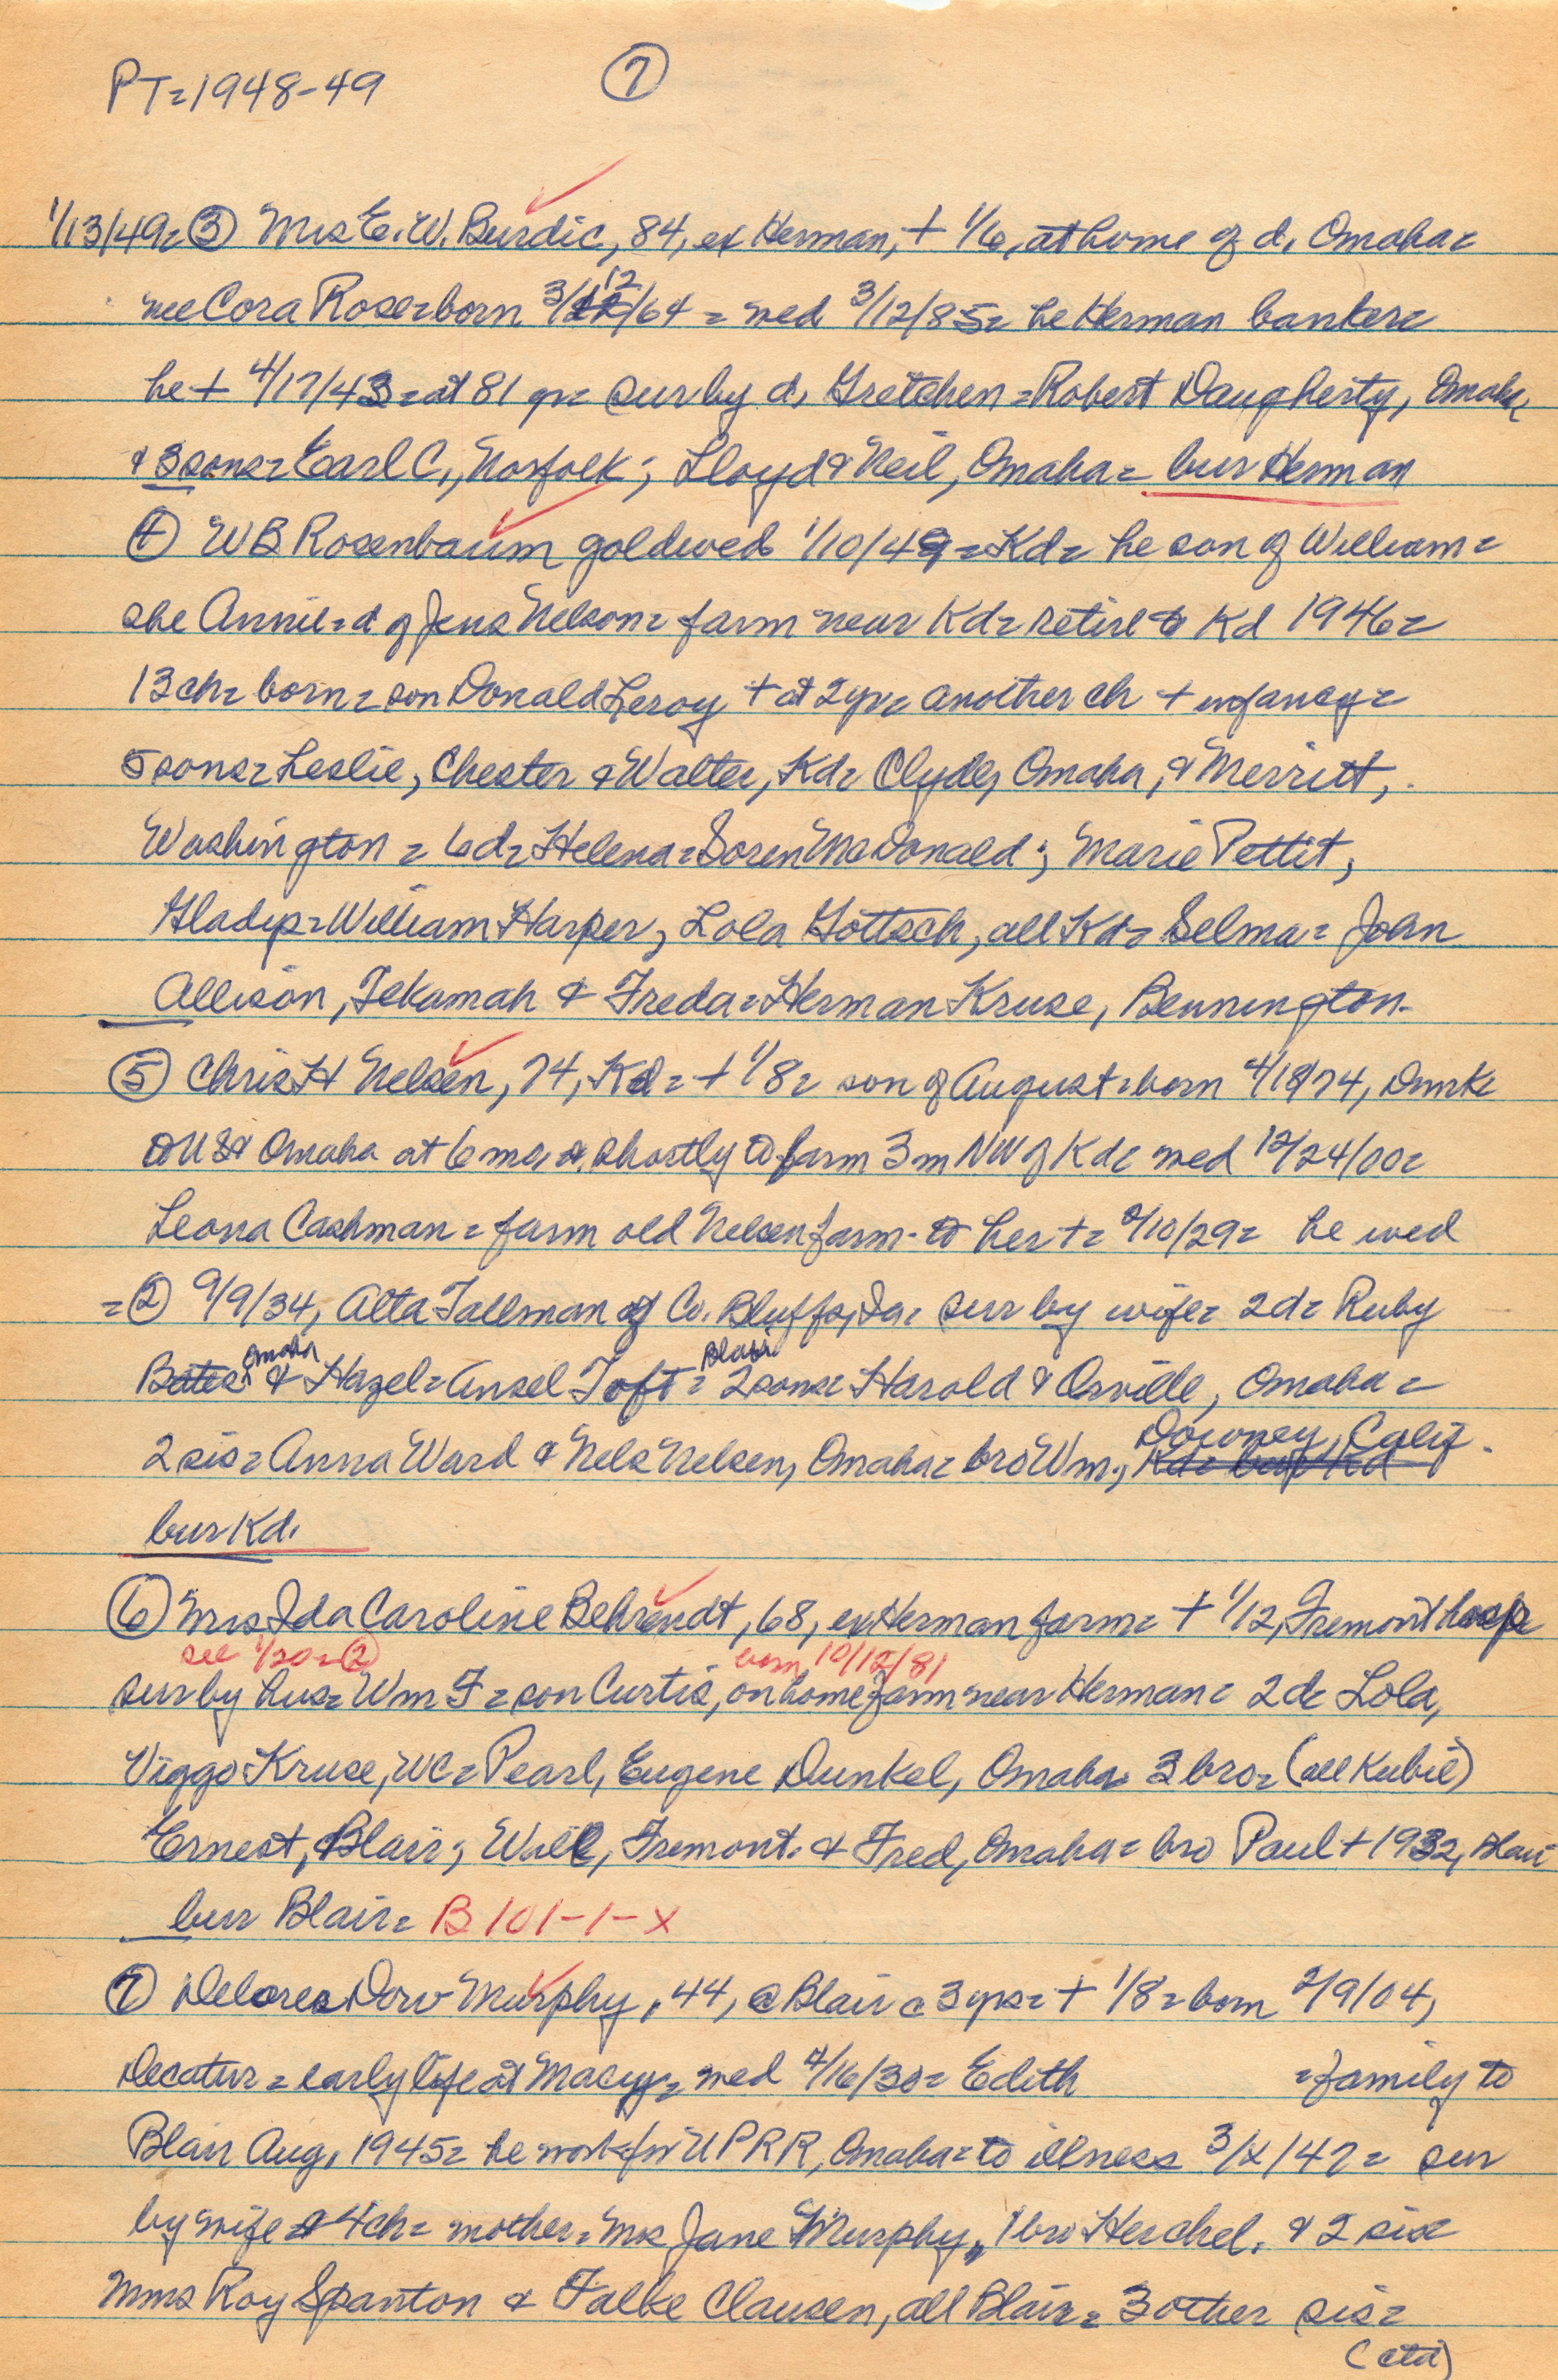 PT=1948-49 ⑦
1/13/49= ③ Mrs E. W. Burdic, 84, ex Herman, + 1/6, at home of d. Omaha=
nee Cora Rose=born 3/12/64 = wed 3/12/85= he Herman banker=
he + 4/17/43=at 81 yr= sur by d, Gretchen=Robert Daugherty, Omaha,
& 3 sons= Earl C., Norfolk; Lloyd & Neil, Omaha= bur Herman
④ WB Rosenbaum goldwed 1/10/49=Kd= he son of William=
she Annie=d of Jens Nelson= farm near Kd= retire to Kd 1946=
13 ch= born= son Donald Leroy + at 2 yr= another ch + infancy=
5 sons= Leslie, Chester & Walter, Kd= Clyde, Omaha, & Merritt,
Washington = 6d= Helena=Soren McDonald; Marie Pettit,
Gladys=William Harper, Lola Gottsch, all Kd= Selma= John
Allison, Tekamah & Freda=Herman Kruse, Bennington.
⑤ Chris H Nelsen, 74, Kd= + 1/8= son of August=born 4/18/74, Dnmk=
to US & Omaha at 6 mo & shortly to farm 3 m NW of Kd= wed 12/24/00=
Leona Cashman = farm old Nelsen farm- to her += 2/10/29= he wed
=② 9/9/34, Alta Tallman of Co. Bluffs, Ia= sur by wife= 2d= Ruby
Bates, Omaha & Hazel=Ansel Toft= Blair 2 sons= Harold & Orville, Omaha=
2 sis= Anna Ward & Nels Nelsen, Omaha= bro Wm., Downey, Calif.
Kd= bur Kd
bur Kd.
⑥ Mrs Ida Caroline Behrendt, 68, ex Herman farm= + 1/12, Fremont hosp=
see 1/20=② born 10/12/81
sur by hus= Wm F= son Curtis, on home farm near Herman= 2d= Lola,
Viggo Kruse, WC= Pearl, Eugene Dunkel, Omaha 3 bro= (all Kubie)
Ernest, Blair; Will, Fremont. & Fred, Omaha= bro Paul + 1932, Blair
bur Blair= B 101-1-X
⑦ Delores Dow Murphy, 44, @ Blair c 3 yrs= + 1/8= born 2/9/04,
Decatur = early life at Macy= wed 4/16/30= Edith =family to
Blair Aug, 1945= he work for UPRR, Omaha= to illness 3/x/47= sur
by wife & 4 ch= mother= Mrs Jane Murphy, 1 bro Herchel. & 2 sis
Mms Roy Spanton & Falke Clausen, all Blair= 3 other sis=
(ctd)